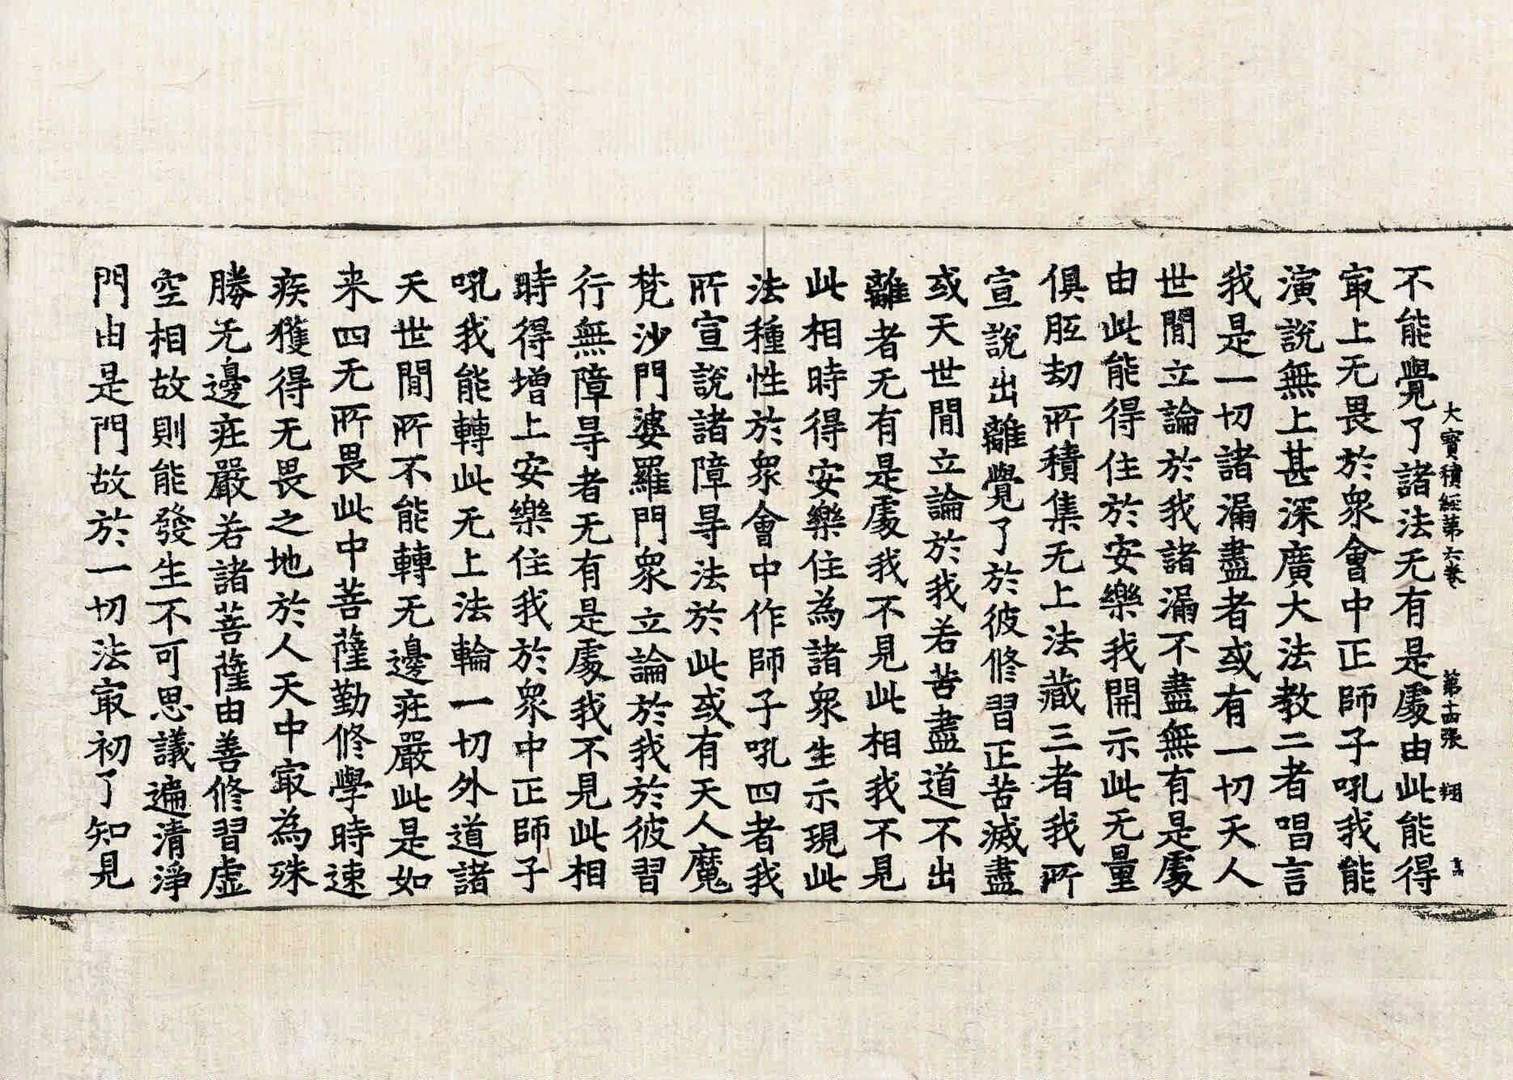 大寶積經第六卷　第十四張　翔
不能覺了諸法无有是處由此能得
㝡上无畏於衆會中正師子吼我能
演說無上甚深廣大法教二者唱言
我是一切諸漏盡者或有一切天人
世閒立論於我諸漏不盡無有是處
由此能得住於安樂我開示此无量
俱胝劫所積集无上法藏三者我所
宣說出離覺了於彼修習正苦滅盡
或天世閒立論於我若苦盡道不出
離者无有是處我不見此相我不見
此相時得安樂住為諸衆生示現此
法種性於衆會中作師子吼四者我
所宣說諸障㝵法於此或有天人魔
梵沙門婆羅門衆立論於我於彼習
行無障㝵者无有是處我不見此相
時得增上安樂住我於衆中正師子
吼我能轉此无上法輪一切外道諸
天世閒所不能轉无邊莊嚴此是如
来四无所畏此中菩薩勤修學時速
疾獲得无畏之地於人天中㝡為殊
勝无邊莊嚴若諸菩薩由善修習虛
空相故則能發生不可思議遍清淨
門由是門故於一切法㝡初了知見